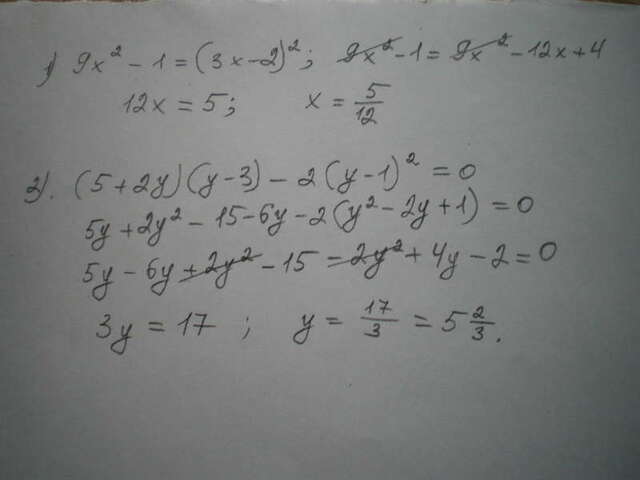 1) 9x² - 1 = (3x - 2)²; 9x² - 1 = 9x² - 12x + 4
12x = 5; x = 5/12
2). (5 + 2y)(y - 3) - 2(y - 1)² = 0
5y + 2y² - 15 - 6y - 2(y² - 2y + 1) = 0
5y - 6y + 2y² - 15 - 2y² + 4y - 2 = 0
3y = 17; y = 17/3 = 5 2/3.